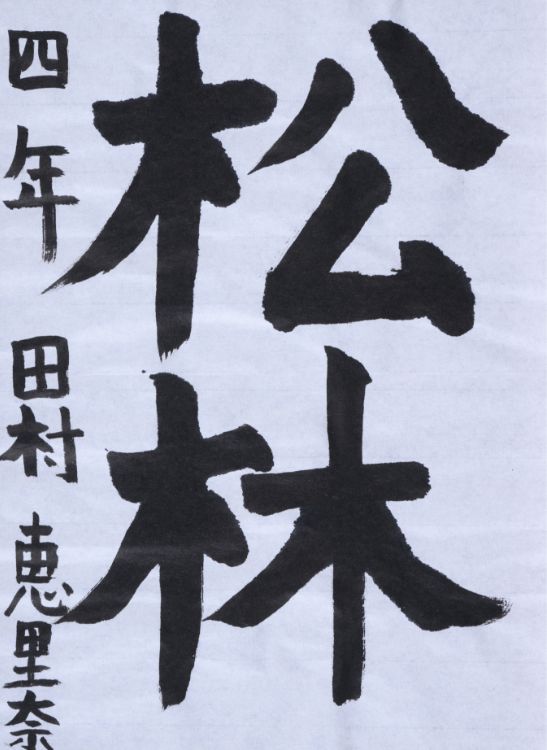 松林
四年 田村 恵里奈